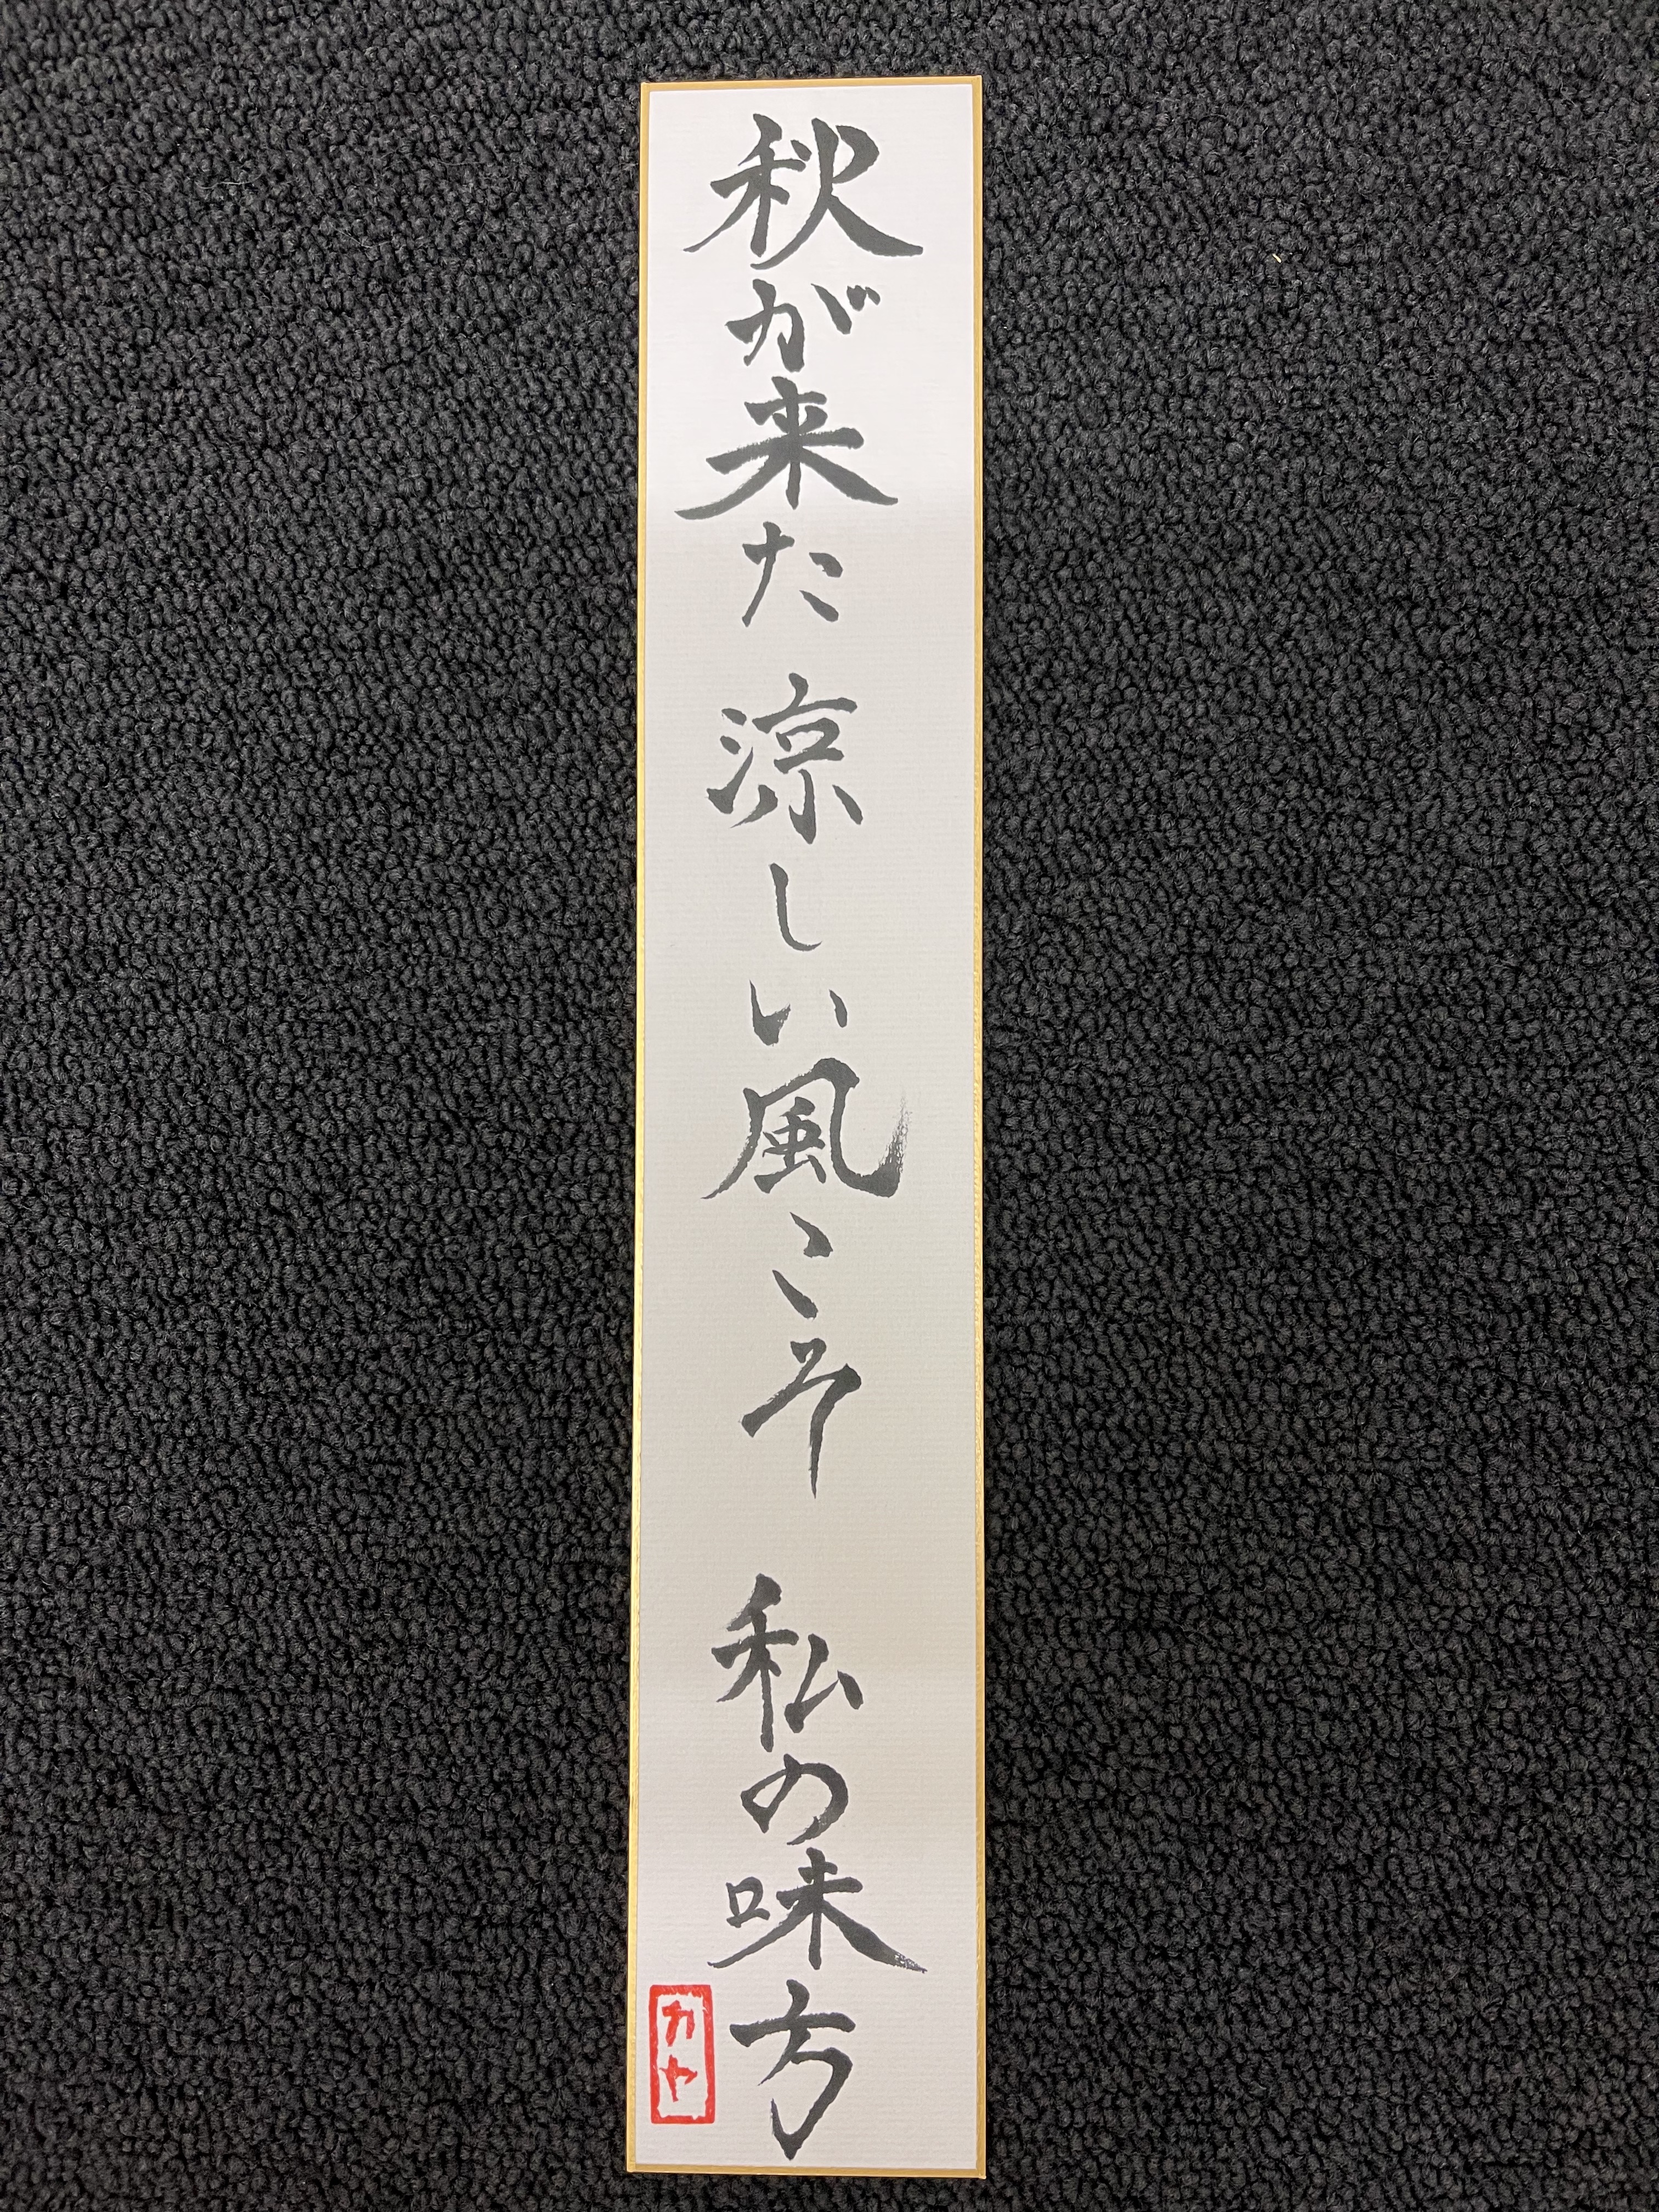 秋が来た 涼しい風こそ 私の味方
カヤ